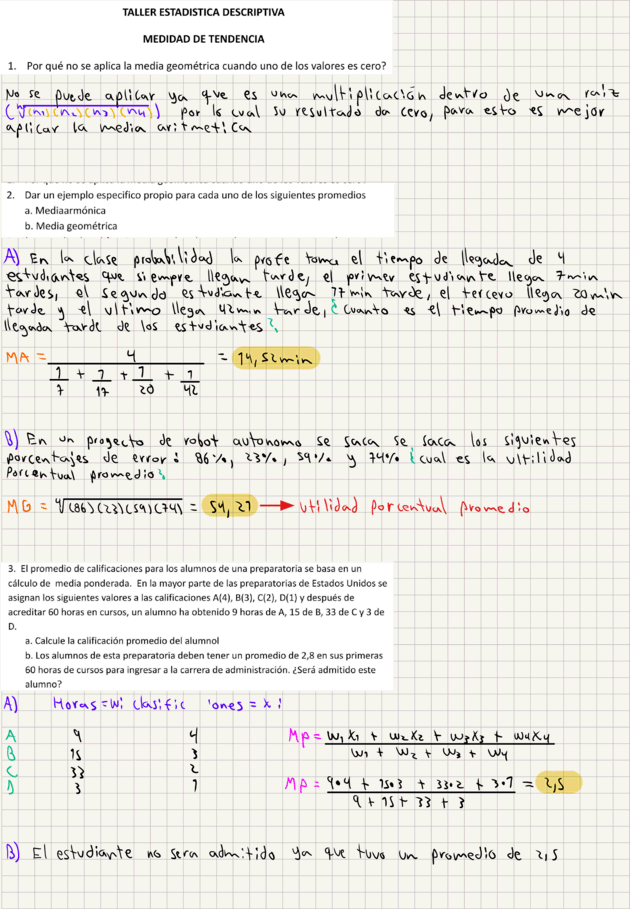 TALLER ESTADISTICA DESCRIPTIVA
MEDIDAD DE TENDENCIA
1. Por qué no se aplica la media geométrica cuando uno de los valores es cero?
No se puede aplicar ya que es una multiplicación dentro de una raíz
(ⁿ√(n₁)(n₂)(n₃)(n₄)) por lo cual su resultado da cero, para esto es mejor
aplicar la media aritmetica
2. Dar un ejemplo especifico propio para cada uno de los siguientes promedios
a. Mediaarmónica
b. Media geométrica
A) En la clase probabilidad la profe toma el tiempo de llegada de 4
estudiantes que siempre llegan tarde, el primer estudiante llega 7min
tardes, el segundo estudiante llega 17min tarde, el tercero llega 20min
tarde y el ultimo llega 42min tarde, ¿cuanto es el tiempo promedio de
llegada tarde de los estudiantes?
MA = 4 / (1/7 + 1/17 + 1/20 + 1/42) = 14,52min
B) En un progecto de robot autonomo se saca se saca los siguientes
porcentajes de error: 86%, 23%, 59% y 74% ¿cual es la ultilidad
Porcentual promedio?
MG = ⁴√(86)(23)(59)(74) = 54,21 → utilidad porcentual promedio
3. El promedio de calificaciones para los alumnos de una preparatoria se basa en un
cálculo de media ponderada. En la mayor parte de las preparatorias de Estados Unidos se
asignan los siguientes valores a las calificaciones A(4), B(3), C(2), D(1) y después de
acreditar 60 horas en cursos, un alumno ha obtenido 9 horas de A, 15 de B, 33 de C y 3 de
D.
a. Calcule la calificación promedio del alumnol
b. Los alumnos de esta preparatoria deben tener un promedio de 2,8 en sus primeras
60 horas de cursos para ingresar a la carrera de administración. ¿Será admitido este
alumno?
A) Horas = wi clasific iones = xi
A 9 4
B 15 3
C 33 2
D 3 1
MP = (w₁x₁ + w₂x₂ + w₃x₃ + w₄x₄) / (w₁ + w₂ + w₃ + w₄)
MP = (9•4 + 15•3 + 33•2 + 3•1) / (9 + 15 + 33 + 3) = 2,5
B) El estudiante no sera admitido ya que tuvo un promedio de 2,5